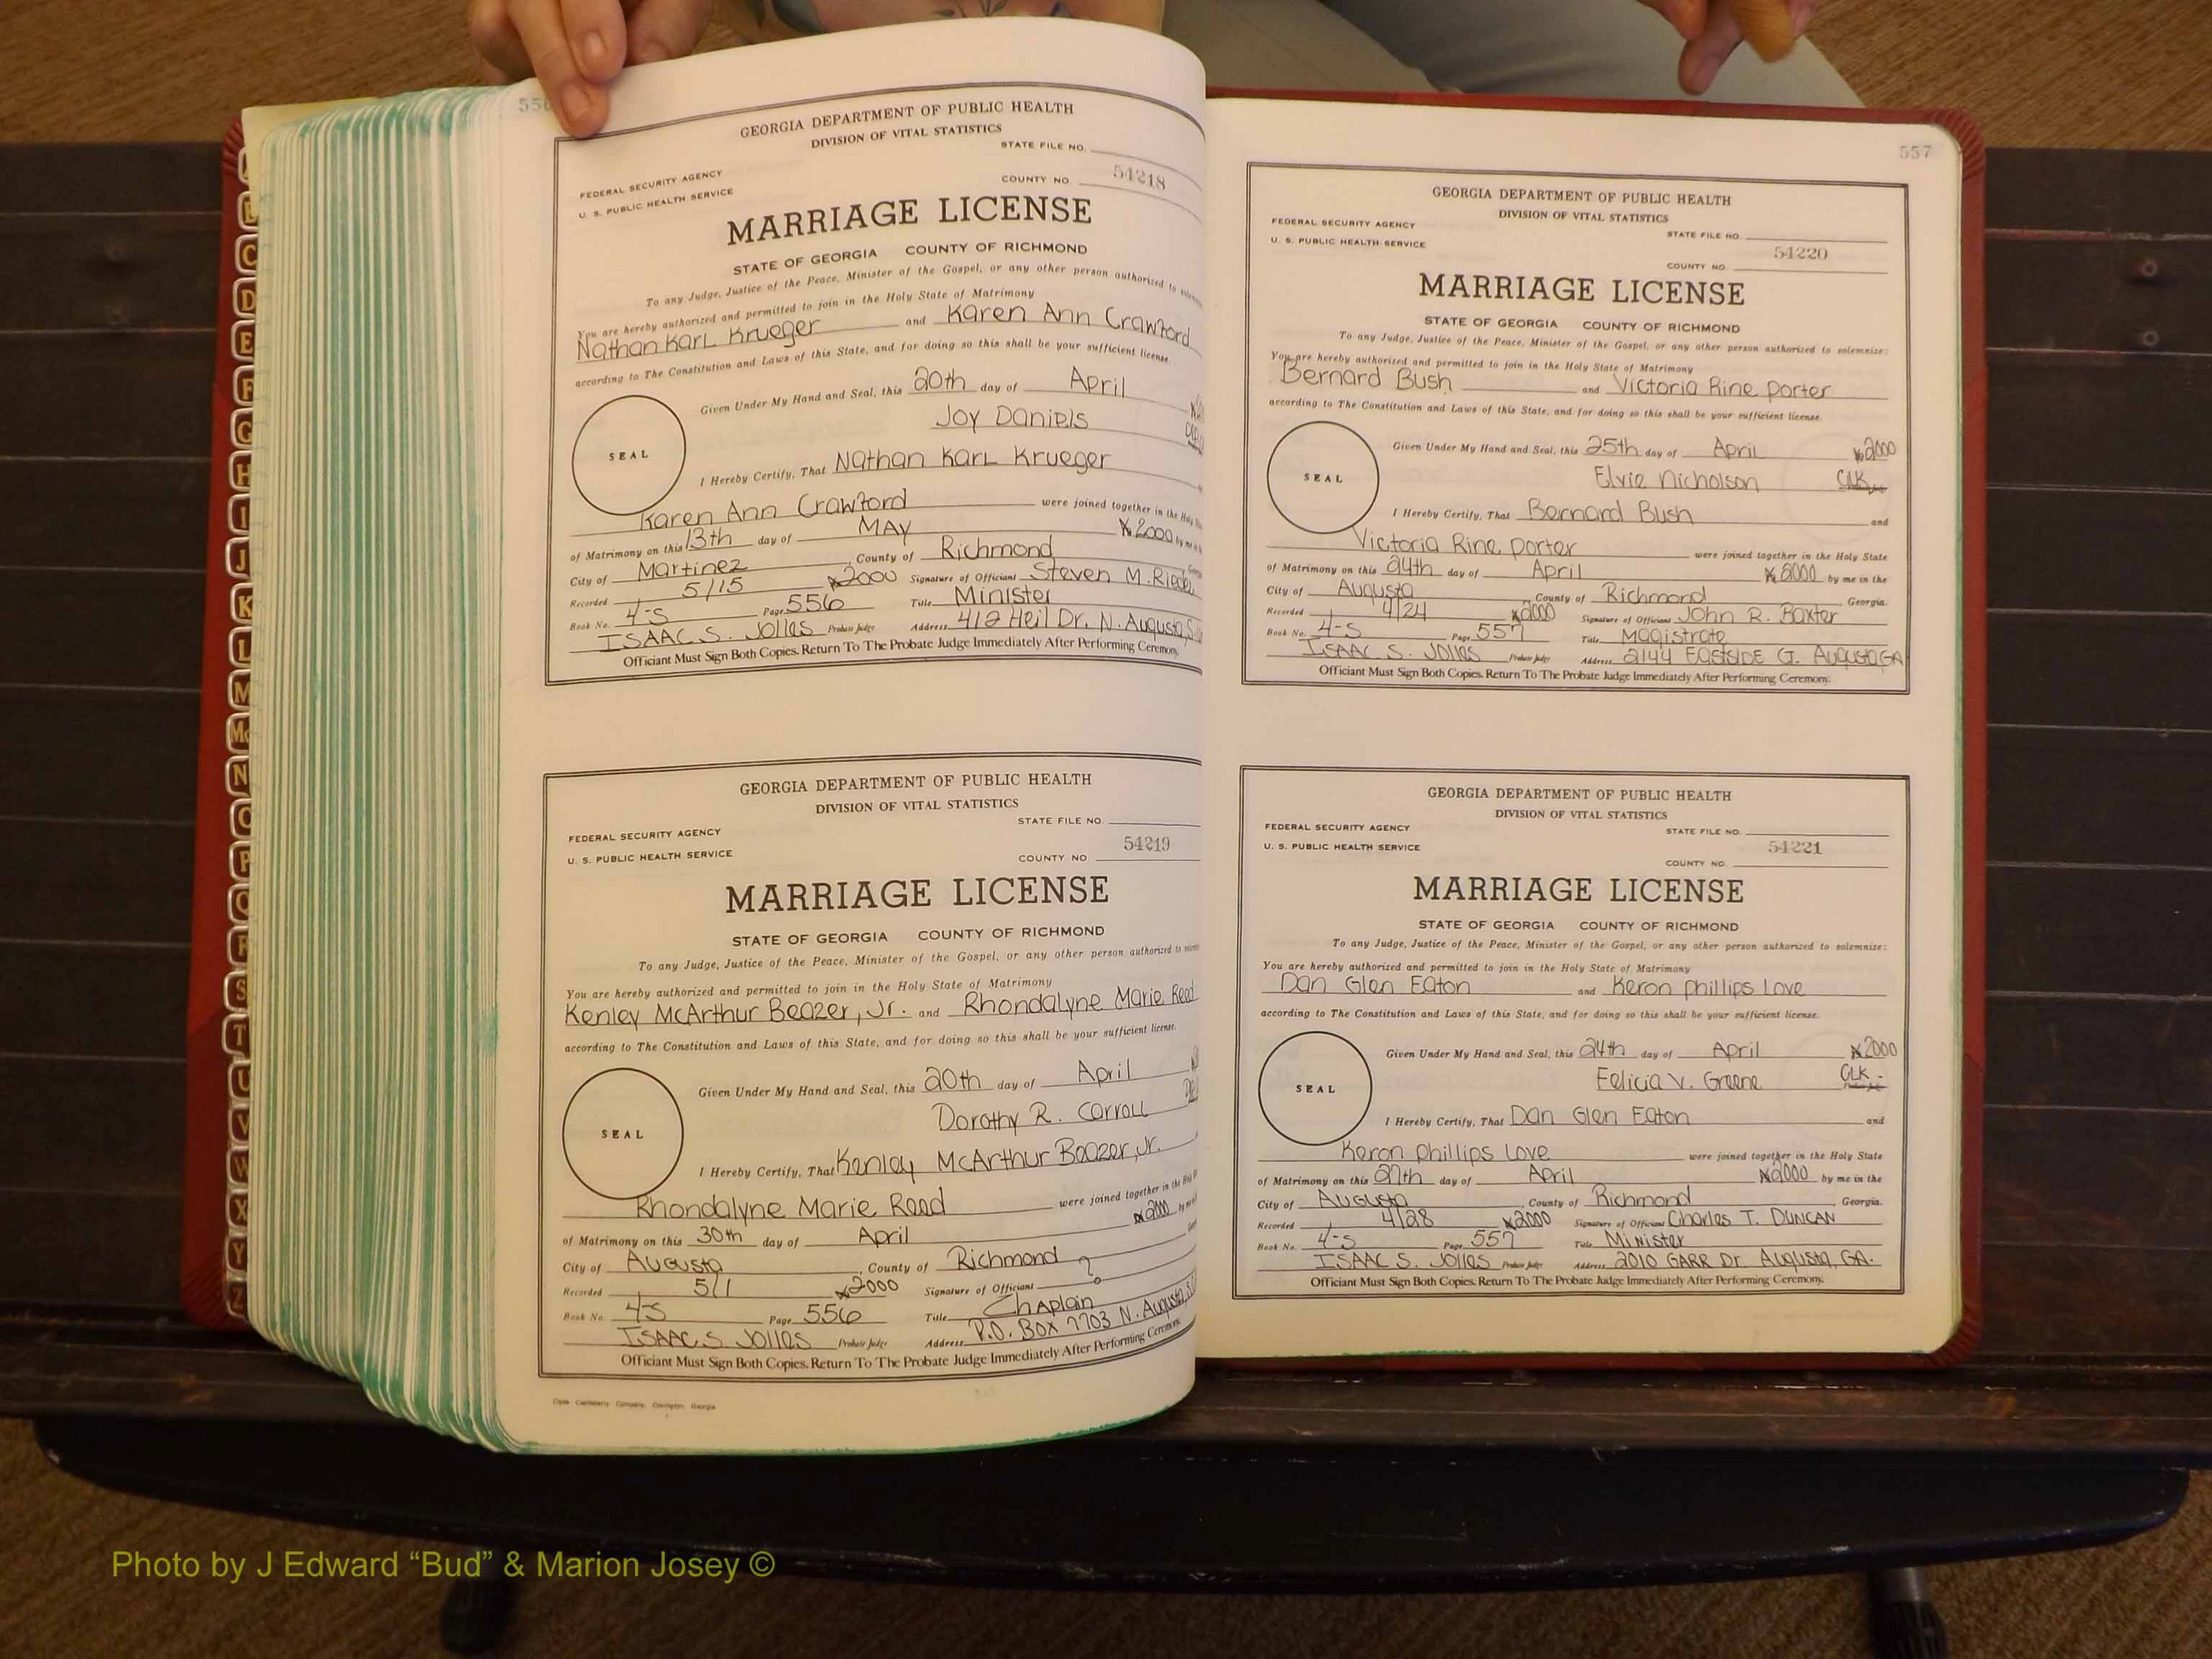 556
GEORGIA DEPARTMENT OF PUBLIC HEALTH
DIVISION OF VITAL STATISTICS
STATE FILE NO.
FEDERAL SECURITY AGENCY
U. S. PUBLIC HEALTH SERVICE
COUNTY NO. 54218
MARRIAGE LICENSE
STATE OF GEORGIA COUNTY OF RICHMOND
To any Judge, Justice of the Peace, Minister of the Gospel, or any other person authorized to
You are hereby authorized and permitted to join in the Holy State of Matrimony
Nathan Karl Krueger and Karen Ann Crawford
according to The Constitution and Laws of this State, and for doing so this shall be your sufficient license.
Given Under My Hand and Seal, this 20th day of April
Joy Daniels
SEAL
I Hereby Certify, That Nathan Karl Krueger
Karen Ann Crawford were joined together in the Holy
of Matrimony on this 13th day of MAY 2000 by me in
City of Martinez, County of Richmond
Recorded 5/15 2000 Signature of Officiant Steven M. Riedel
Book No. 4-S Page 556 Title Minister
ISAAC S. Jolles Probate Judge Address 412 Heil Dr. N. Augusta, S
Officiant Must Sign Both Copies. Return To The Probate Judge Immediately After Performing Ceremony.
GEORGIA DEPARTMENT OF PUBLIC HEALTH
DIVISION OF VITAL STATISTICS
STATE FILE NO.
FEDERAL SECURITY AGENCY
U. S. PUBLIC HEALTH SERVICE
54219
COUNTY NO.
MARRIAGE LICENSE
STATE OF GEORGIA COUNTY OF RICHMOND
To any Judge, Justice of the Peace, Minister of the Gospel, or any other person authorized to
You are hereby authorized and permitted to join in the Holy State of Matrimony
Kenley McArthur Beazer, Jr. and Rhondalyne Marie Reed
according to The Constitution and Laws of this State, and for doing so this shall be your sufficient license.
Given Under My Hand and Seal, this 20th day of April
Dorothy R. Carroll
SEAL
I Hereby Certify, That Kenley McArthur Beazer, Jr.
Rhondalyne Marie Reed were joined together in the Holy
of Matrimony on this 30th day of April 2000 by me
City of Augusta, County of Richmond
Recorded 5/1 2000 Signature of Officiant ?
Book No. 4-S Page 556 Title Chaplain
ISAAC S. Jolles Probate Judge Address P.O. Box 7703 N. Augusta, S
Officiant Must Sign Both Copies. Return To The Probate Judge Immediately After Performing Ceremony.
Clyde Castleberry Company, Covington, Georgia
557
GEORGIA DEPARTMENT OF PUBLIC HEALTH
DIVISION OF VITAL STATISTICS
FEDERAL SECURITY AGENCY
STATE FILE NO.
U. S. PUBLIC HEALTH SERVICE
54220
COUNTY NO.
MARRIAGE LICENSE
STATE OF GEORGIA COUNTY OF RICHMOND
To any Judge, Justice of the Peace, Minister of the Gospel, or any other person authorized to solemnize:
You are hereby authorized and permitted to join in the Holy State of Matrimony
Bernard Bush and Victoria Rine Porter
according to The Constitution and Laws of this State, and for doing so this shall be your sufficient license.
Given Under My Hand and Seal, this 25th day of April 2000
Elvie Nicholson CLK
SEAL
I Hereby Certify, That Bernard Bush and
Victoria Rine Porter were joined together in the Holy State
of Matrimony on this 24th day of April 2000 by me in the
City of Augusta, County of Richmond Georgia.
Recorded 4/24 2000 Signature of Officiant John R. Baxter
Book No. 4-S Page 557 Title Magistrate
ISAAC S. Jolles Probate Judge Address 2144 Eastside Ct. Augusta GA
Officiant Must Sign Both Copies. Return To The Probate Judge Immediately After Performing Ceremony.
GEORGIA DEPARTMENT OF PUBLIC HEALTH
DIVISION OF VITAL STATISTICS
FEDERAL SECURITY AGENCY
STATE FILE NO.
U. S. PUBLIC HEALTH SERVICE
54221
COUNTY NO.
MARRIAGE LICENSE
STATE OF GEORGIA COUNTY OF RICHMOND
To any Judge, Justice of the Peace, Minister of the Gospel, or any other person authorized to solemnize:
You are hereby authorized and permitted to join in the Holy State of Matrimony
Dan Glen Eaton and Keron Phillips Love
according to The Constitution and Laws of this State, and for doing so this shall be your sufficient license.
Given Under My Hand and Seal, this 24th day of April 2000
Felicia V. Greene CLK
SEAL
I Hereby Certify, That Dan Glen Eaton and
Keron Phillips Love were joined together in the Holy State
of Matrimony on this 27th day of April 2000 by me in the
City of Augusta, County of Richmond Georgia.
Recorded 4/28 2000 Signature of Officiant Charles T. DUNCAN
Book No. 4-S Page 557 Title Minister
ISAAC S. Jolles Probate Judge Address 2010 GARR Dr. Augusta, GA.
Officiant Must Sign Both Copies. Return To The Probate Judge Immediately After Performing Ceremony.
C
D
E
F
G
H
I
J
K
L
M
Mc
N
O
P
Q
R
S
T
U
V
W
X
Y
Z
Photo by J Edward “Bud” & Marion Josey ©